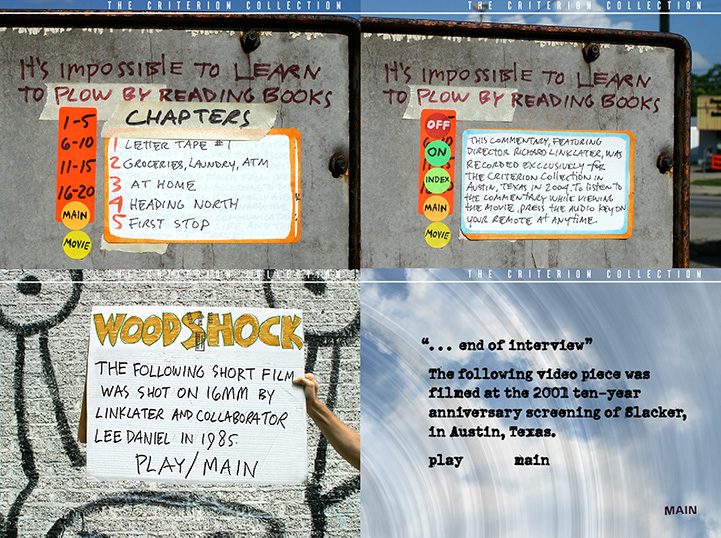 THE CRITERION COLLECTION
IT'S IMPOSSIBLE TO LEARN
TO PLOW BY READING BOOKS
CHAPTERS
1-5
6-10
11-15
16-20
MAIN
MOVIE
1 LETTER TAPE #1
2 GROCERIES, LAUNDRY, ATM
3 AT HOME
4 HEADING NORTH
5 FIRST STOP
THE CRITERION COLLECTION
IT'S IMPOSSIBLE TO LEARN
TO PLOW BY READING BOOKS
OFF
ON
INDEX
MAIN
MOVIE
THIS COMMENTARY, FEATURING
DIRECTOR RICHARD LINKLATER, WAS
RECORDED EXCLUSIVELY FOR
THE CRITERION COLLECTION IN
AUSTIN, TEXAS IN 2004. TO LISTEN TO
THE COMMENTARY WHILE VIEWING
THE MOVIE, PRESS THE AUDIO KEY ON
YOUR REMOTE AT ANYTIME.
THE CRITERION COLLECTION
WOODSHOCK
THE FOLLOWING SHORT FILM
WAS SHOT ON 16MM BY
LINKLATER AND COLLABORATOR
LEE DANIEL IN 1985.
PLAY/MAIN
THE CRITERION COLLECTION
"... end of interview"
The following video piece was
filmed at the 2001 ten-year
anniversary screening of Slacker,
in Austin, Texas.
play main
MAIN